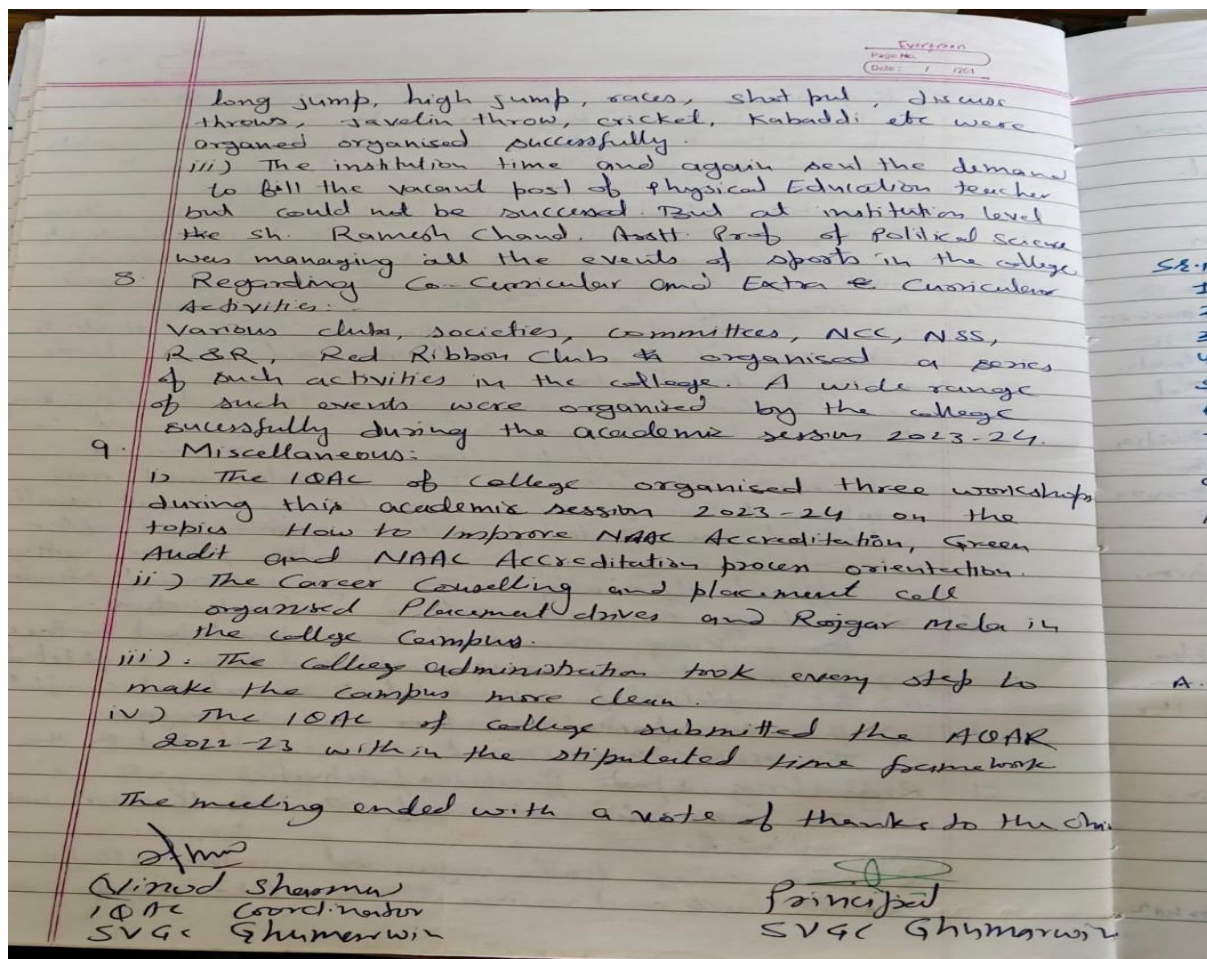 Evergreen
Page No.
Date : / /201
long jump, high jump, races, shot put, discuse
throws, Javelin throw, cricket, Kabaddi etc were
organed organised successfully.
iii) The institution time and again sent the demand
to fill the vacant post of Physical Education teacher
but could not be succeed. But at institution level
the Sh. Ramesh Chand. Asstt. Prof of Political Science
was managing all the events of sports in the college
8. Regarding Co-Curricular and Extra Curricular
Activities:
Various clubs, societies, committees, NCC, NSS,
R&R, Red Ribbon Club organised a series
of such activities in the college. A wide range
of such events were organized by the college
sucessfully during the academic session 2023-24.
9. Miscellaneous:
i) The IQAC of college organised three workshops
during this academic session 2023-24 on the
topics How to Improve NAAC Accreditation, Green
Audit and NAAC Accreditation process orientation.
ii) The Career Couselling and placement cell
organised Placement drives and Rojgar mela in
the collge Campus.
iii). The College administration took every step to
make the campus more clean.
iv) The IQAC of college submitted the AQAR
2022-23 within the stipulated time framework
The meeting ended with a vote of thanks to the Chai
Vinod Sharma
IQAC Coordinator
SVGC Ghumarwin
Principal
SVGC Ghumarwin
Sr.
1
2
3
4
5
A.